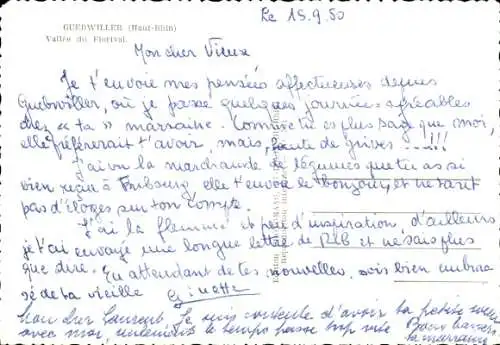 GUEBWILLER (Haut-Rhin)
Vallée du Florival.
Le 15.9.50
Mon cher Vieux
Je t'envoie mes pensées affectueuses depuis
Guebwiller, où je passe quelques journées agréables
chez « ta » marraine. Comme tu es plus sage que moi,
elle préférerait t'avoir, mais, faute de grives ....!!!
J'ai vu la marchande de légumes que tu as si
bien reçu à Fribourg elle t'envoie le bonjour, et ne tarit
pas d'éloges sur ton compte.
J'ai la flemme et peu d'inspiration, d'ailleurs
je t'ai envoyé une longue lettre de et ne sais plus
que dire. En attendant de tes nouvelles, sois bien embras
sé de ta vieille Ginette
Mon cher Laurent, Je suis d'avoir ta petite
avec moi, le temps passe trop vite Bons baisers
ta marraine